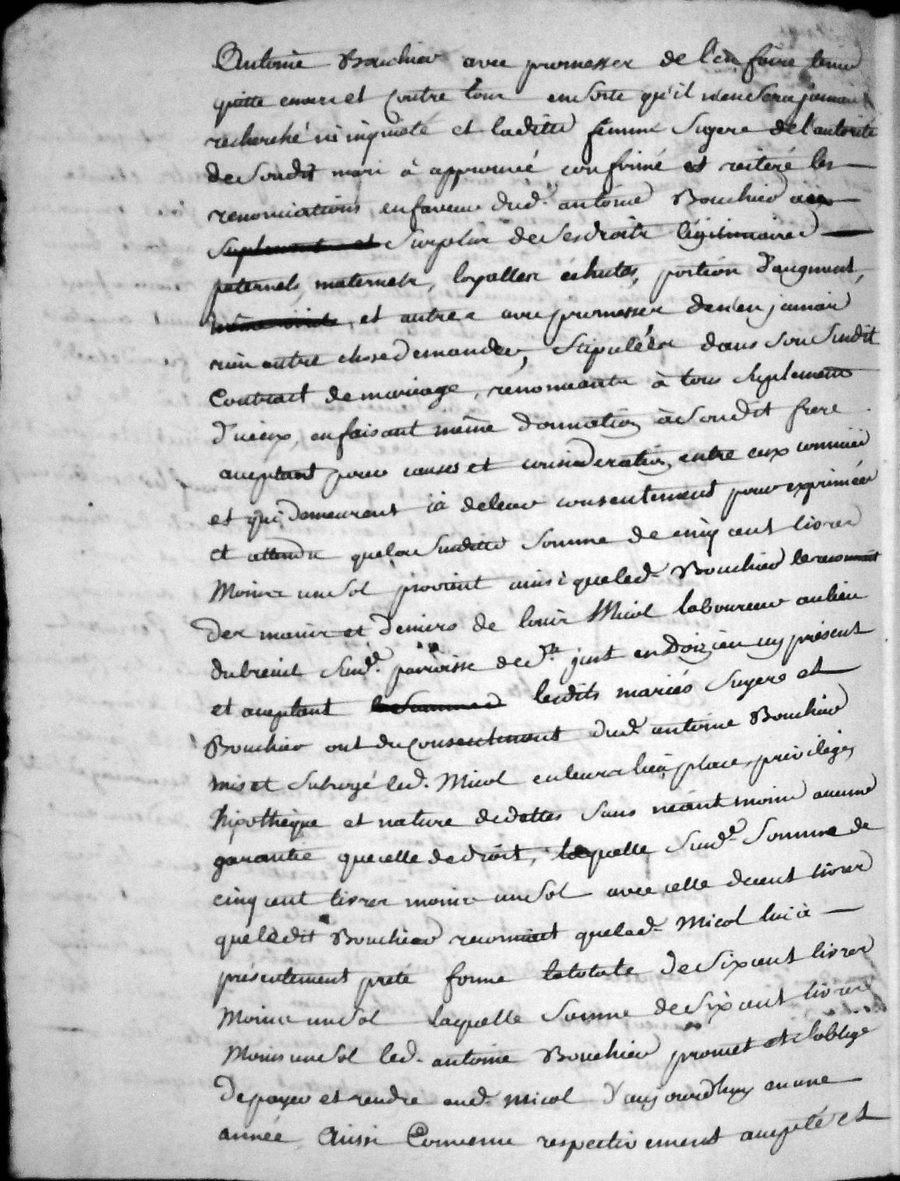 Antoine Bouchier avec promesses de l'en faire tenir
quitte envers et contre tous en sorte qu'il n'en sera jamais
recherché ni inquiété et laditte femme Sugere de l'autorité
de Sondit mari à approuvé confirmé et reiteré les
renonciations en faveur dud. antoine Bouchier
Suplement et Surplus de Ses droits légitimaires
paternels, maternels, loyalles échutes, portion d'augment,
et autres avec promesses de n'en jamais
rien autre chose demander, Stipulées dans Son Susdit
Contrait de mariage, renonceante à tous Suplements
d'iceux, en faisant même donnation à Sondit frere
aceptant pour causes et considerations entre eux connües
et qui demeurent ici de leur consentement pour exprimées
et attendu que la Susditte Somme de cinq cent livres
Moins un Sol provient ainsi que led. Bouchier le reconnait
des mains et deniers de louis Micol laboureur au lieu
du breuil Susd.e parroisse de St. just en Doizieu cy présent
et aceptant lesdits mariés Sugere et
Bouchier ont du consentement dud. antoine Bouchier
mis et Subrogé led. Micol en leurs lieu, place, privilèges,
hipothèque et nature de dettes Sans néantmoins aucune
garantie que celle de droit, laquelle Susd.e Somme de
cinq cent livres moins un Sol avec celle de cent livres
que ledit Bouchier reconnait que led. Micol lui à
présentement preté forme la totale de Six cent livres
Moins un Sol laquelle Somme de Six cent livres
Moins un Sol led. antoine Bouchier promet et S'oblige
de payer et rendre aud. Micol d'aujourd'huy en une
année Ainsi Convenu respectivement acepté et